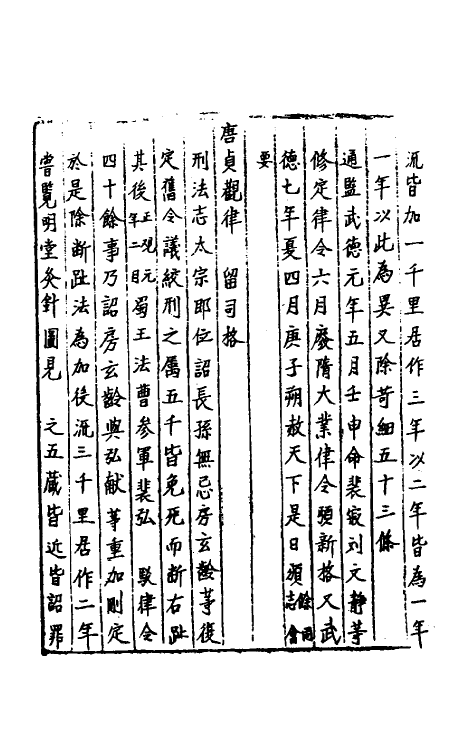 流皆加一千里居作三年以二年皆為一年
一年以此為異又除苛細五十三條
通監武德元年五月壬申命裴寂刘文靜等
修定律令六月廢隋大業律令頒新格又武
德七年夏四月庚子朔赦天下是日頒餘同志會
要
唐貞觀律 留司格
刑法志太宗即位詔長孫無忌房玄齡等復
定舊令議絞刑之属五千皆免死而斷右趾
其後正观元年二目蜀王法曹参軍裴弘 駁律令
四十餘事乃詔房玄齡與弘献等重加刪定
於是除断趾法為加役流三千里居作二年
嘗覧明堂灸針圖見 之五藏皆近皆詔罪